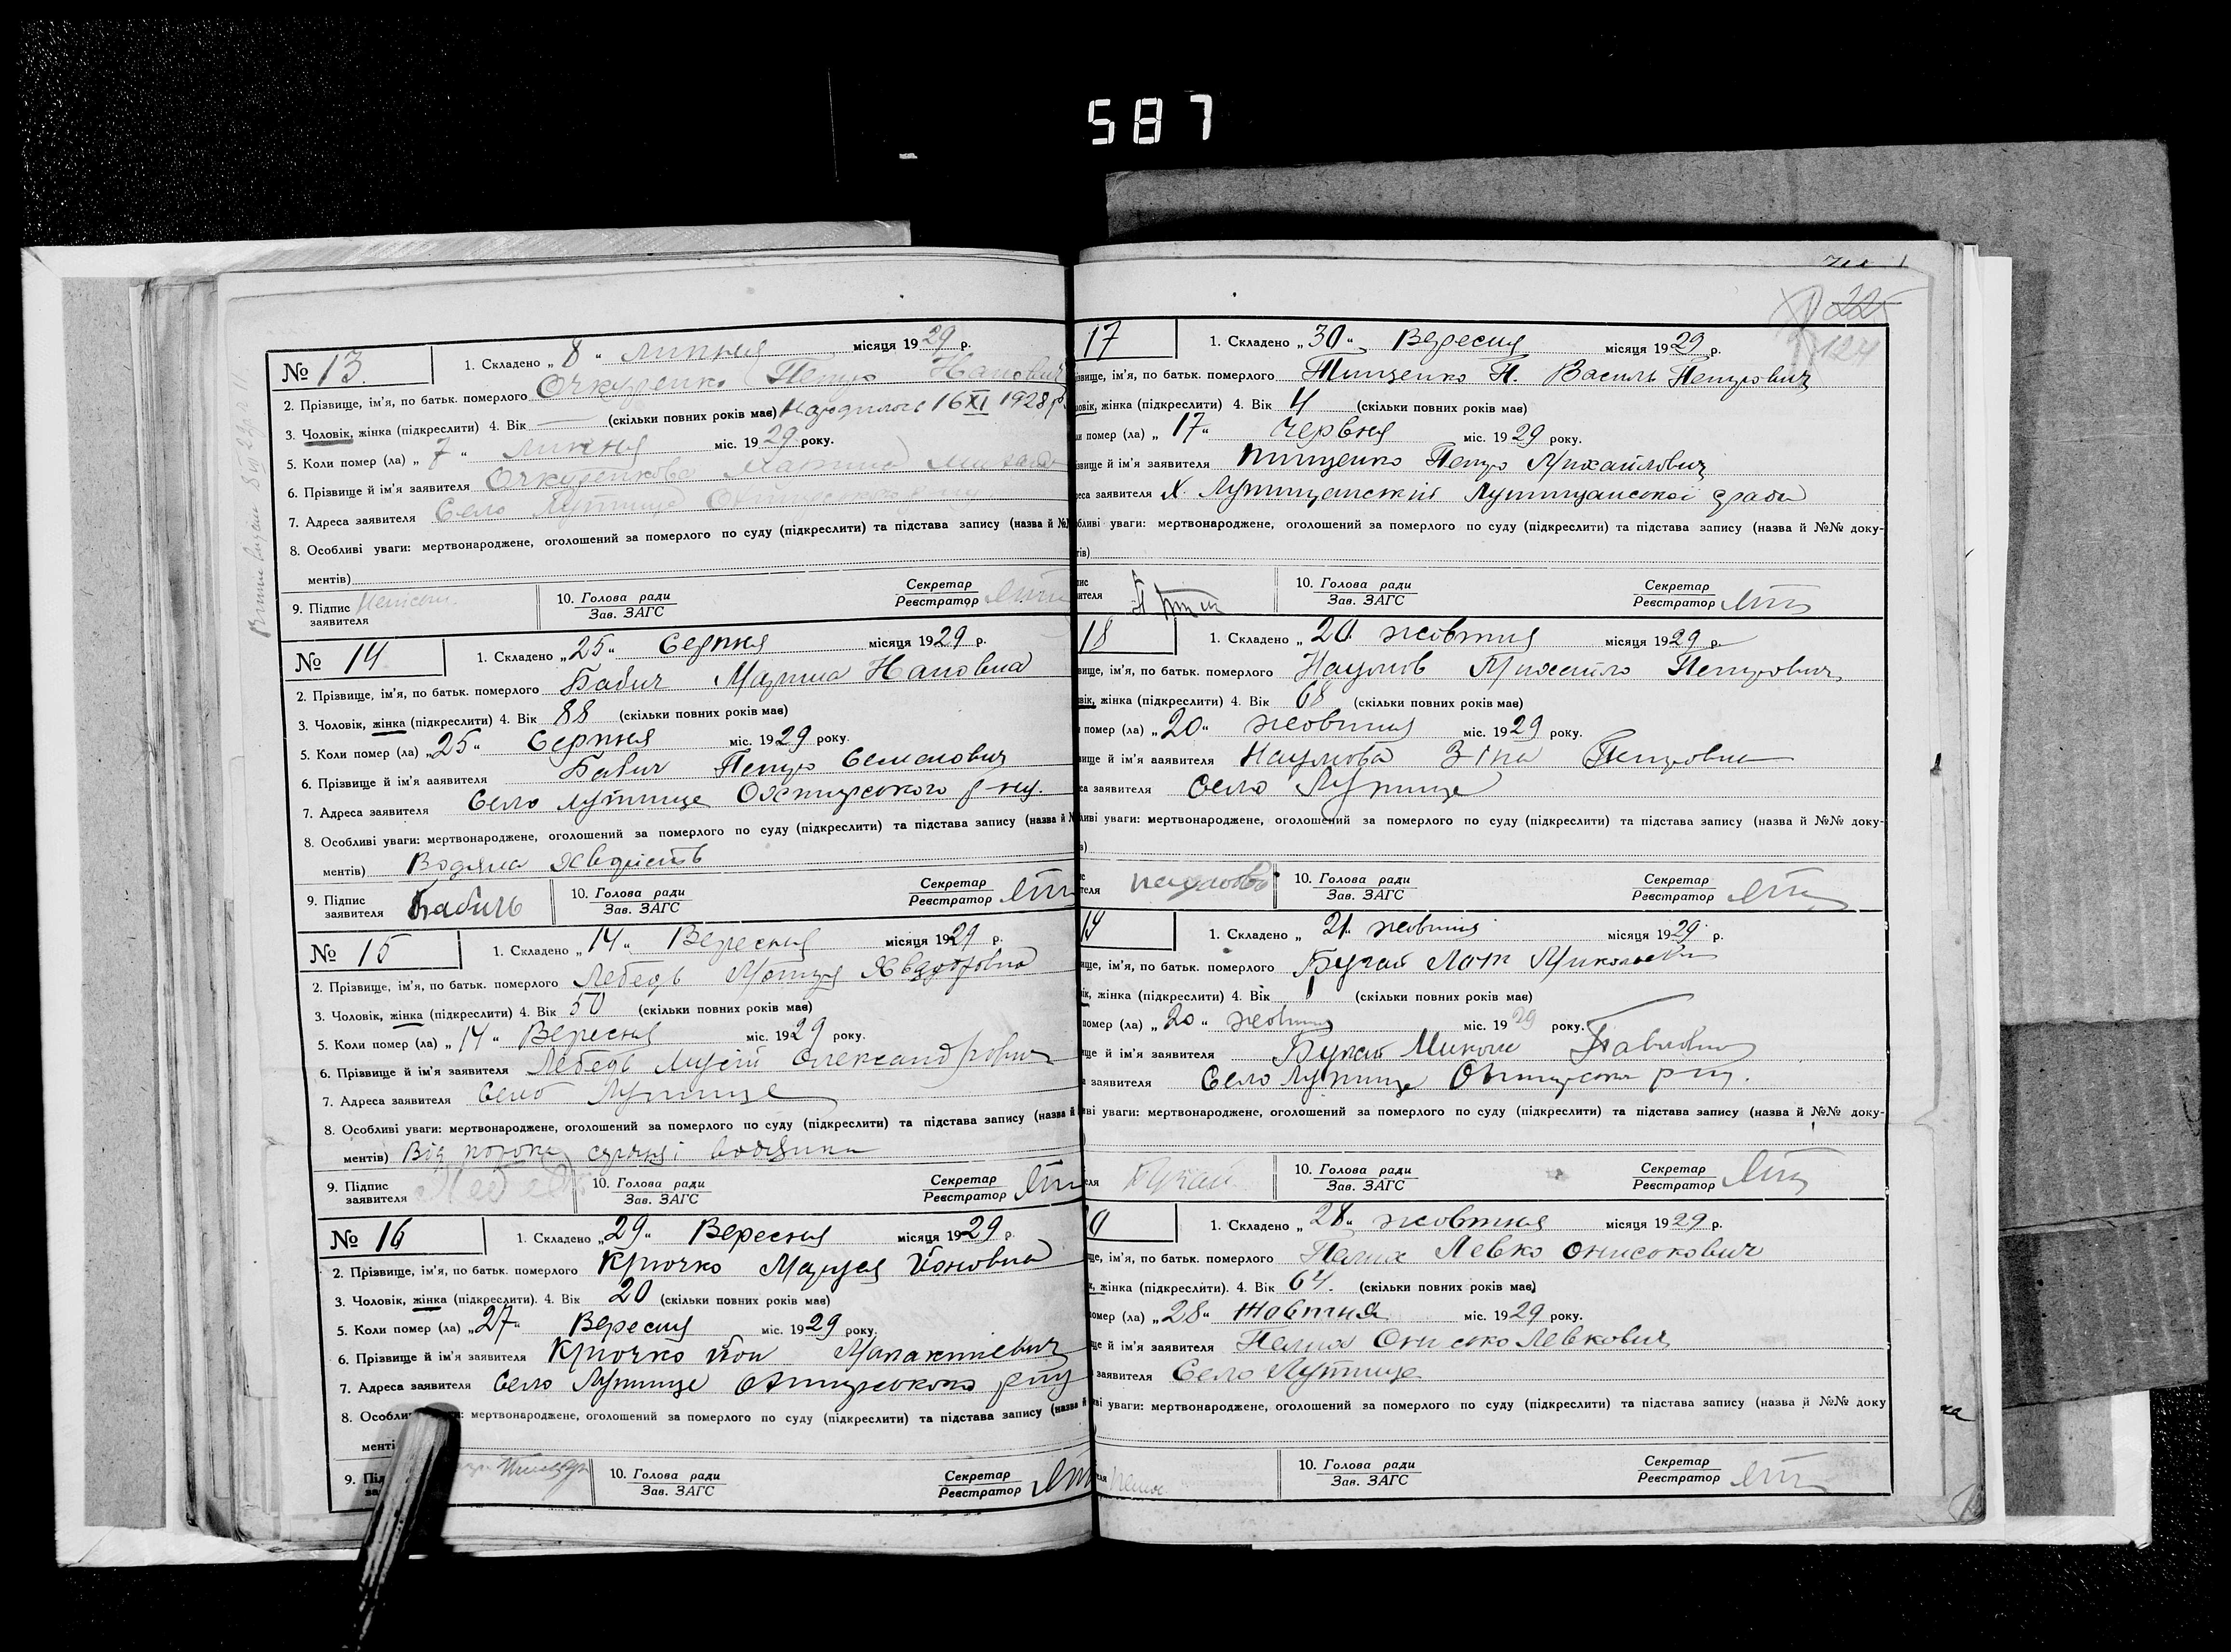 587
№ 13.
1. Складено „ 8 “ липня місяця 1929 р.
2. Прізвище, ім'я, по батьк. померлого Очкуренко Петро Йанович
3. Чоловік, жінка (підкреслити) 4. Вік — (скільки повних років має) Народилось 16 XI 1928 р.
5. Коли помер (ла) „ 7 “ липня міс. 1929 року.
6. Прізвище й ім'я заявителя Очкуренкова
7. Адреса заявителя Село Лутище
8. Особливі уваги: мертвонароджене, оголошений за померлого по суду (підкреслити) та підстава запису (назва й №№
ментів)
9. Підпис заявителя
10. Голова ради Зав. ЗАГС
Секретар Реєстратор
№ 14
1. Складено „ 25 “ Серпня місяця 1929 р.
2. Прізвище, ім'я, по батьк. померлого Бабич Марина Йановна
3. Чоловік, жінка (підкреслити) 4. Вік 88 (скільки повних років має)
5. Коли помер (ла) „ 25 “ Серпня міс. 1929 року.
6. Прізвище й ім'я заявителя Бабич Петро Семенович
7. Адреса заявителя Село Лутище Охтирського р-ну.
8. Особливі уваги: мертвонароджене, оголошений за померлого по суду (підкреслити) та підстава запису (назва й №
ментів) Водяна
9. Підпис заявителя Бабичь
10. Голова ради Зав. ЗАГС
Секретар Реєстратор
№ 15
1. Складено „ 14 “ Вересня місяця 1929 р.
2. Прізвище, ім'я, по батьк. померлого Лебедь Мотря
3. Чоловік, жінка (підкреслити) 4. Вік 50 (скільки повних років має)
5. Коли помер (ла) „ 14 “ Вересня міс. 1929 року.
6. Прізвище й ім'я заявителя Лебедь Мусій Олександрович
7. Адреса заявителя Село Лутище
8. Особливі уваги: мертвонароджене, оголошений за померлого по суду (підкреслити) та підстава запису (назва й
ментів) Від порока серця і водянки
9. Підпис заявителя Лебедь
10. Голова ради Зав. ЗАГС
Секретар Реєстратор
№ 16
1. Складено „ 29 “ Вересня місяця 1929 р.
2. Прізвище, ім'я, по батьк. померлого Крючко Маруся Йоновна
3. Чоловік, жінка (підкреслити). 4. Вік 20 (скільки повних років має)
5. Коли помер (ла) „ 27 “ Вересня міс. 1929 року.
6. Прізвище й ім'я заявителя Крючко Йон
7. Адреса заявителя Село Лутище Охтирського р-ну
8. Особли : мертвонароджене, оголошений за померлого по суду (підкреслити) та підстава запису (назва й
менті
9. Під
10. Голова ради Зав. ЗАГС
Секретар Реєстратор
225
124
17
1. Складено „ 30 “ Вересня місяця 1929 р.
ізвище, ім'я, по батьк. померлого Тищенко П. Василь Петрович
ловік, жінка (підкреслити) 4. Вік 4 (скільки повних років має)
ли помер (ла) „ 17 “ Червня міс. 1929 року.
звище й ім'я заявителя Тищенко Петро Михайлович
реса заявителя Х. Лутищанский Лутищанської с/ради
бливі уваги: мертвонароджене, оголошений за померлого по суду (підкреслити) та підстава запису (назва й №№ доку-
тів)
10. Голова ради Зав. ЗАГС
Секретар Реєстратор
18
1. Складено „ 20 “ жовтня місяця 1929 р.
вище, ім'я, по батьк. померлого Наумов Михайло Петрович
вік, жінка (підкреслити) 4. Вік 68 (скільки повних років має)
помер (ла) „ 20 “ жовтня міс. 1929 року.
вище й ім'я заявителя Наумова Зіна Петровна
са заявителя Село Лутище
ливі уваги: мертвонароджене, оголошений за померлого по суду (підкреслити) та підстава запису (назва й №№ доку-
теля Наумова
10. Голова ради Зав. ЗАГС
Секретар Реєстратор
19
1. Складено „ 21 “ жовтня місяця 1929 р.
ище, ім'я, по батьк. померлого Бугай Миколаевич
ік, жінка (підкреслити) 4. Вік 1 (скільки повних років має)
помер (ла) „ 20 “ жовтня міс. 1929 року.
ище й ім'я заявителя Бугай Микола Павлович
заявителя Село Лутище Охтирськ р-ну.
иві уваги: мертвонароджене, оголошений за померлого по суду (підкреслити) та підстава запису (назва й №№ доку-
еля Бугай
10. Голова ради Зав. ЗАГС
Секретар Реєстратор
0
1. Складено „ 28 “ жовтня місяця 1929 р.
ще, ім'я, по батьк. померлого Пелих Левко Онисокович
, жінка (підкреслити). 4. Вік 64. (скільки повних років має)
омер (ла) „ 28 “ Жовтня міс. 1929 року.
ще й ім'я заявителя Пелих Онисько Левкович
заявителя Село Лутище
иві уваги: мертвонароджене, оголошений за померлого по суду (підкреслити) та підстава запису (назва й №№ доку
10. Голова ради Зав. ЗАГС
Секретар Реєстратор